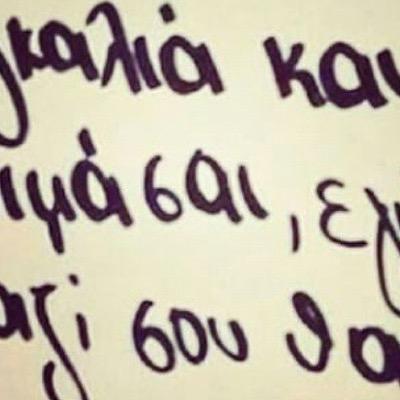 γκαλιά και
ιμάσαι, εγ
αζί σου θα